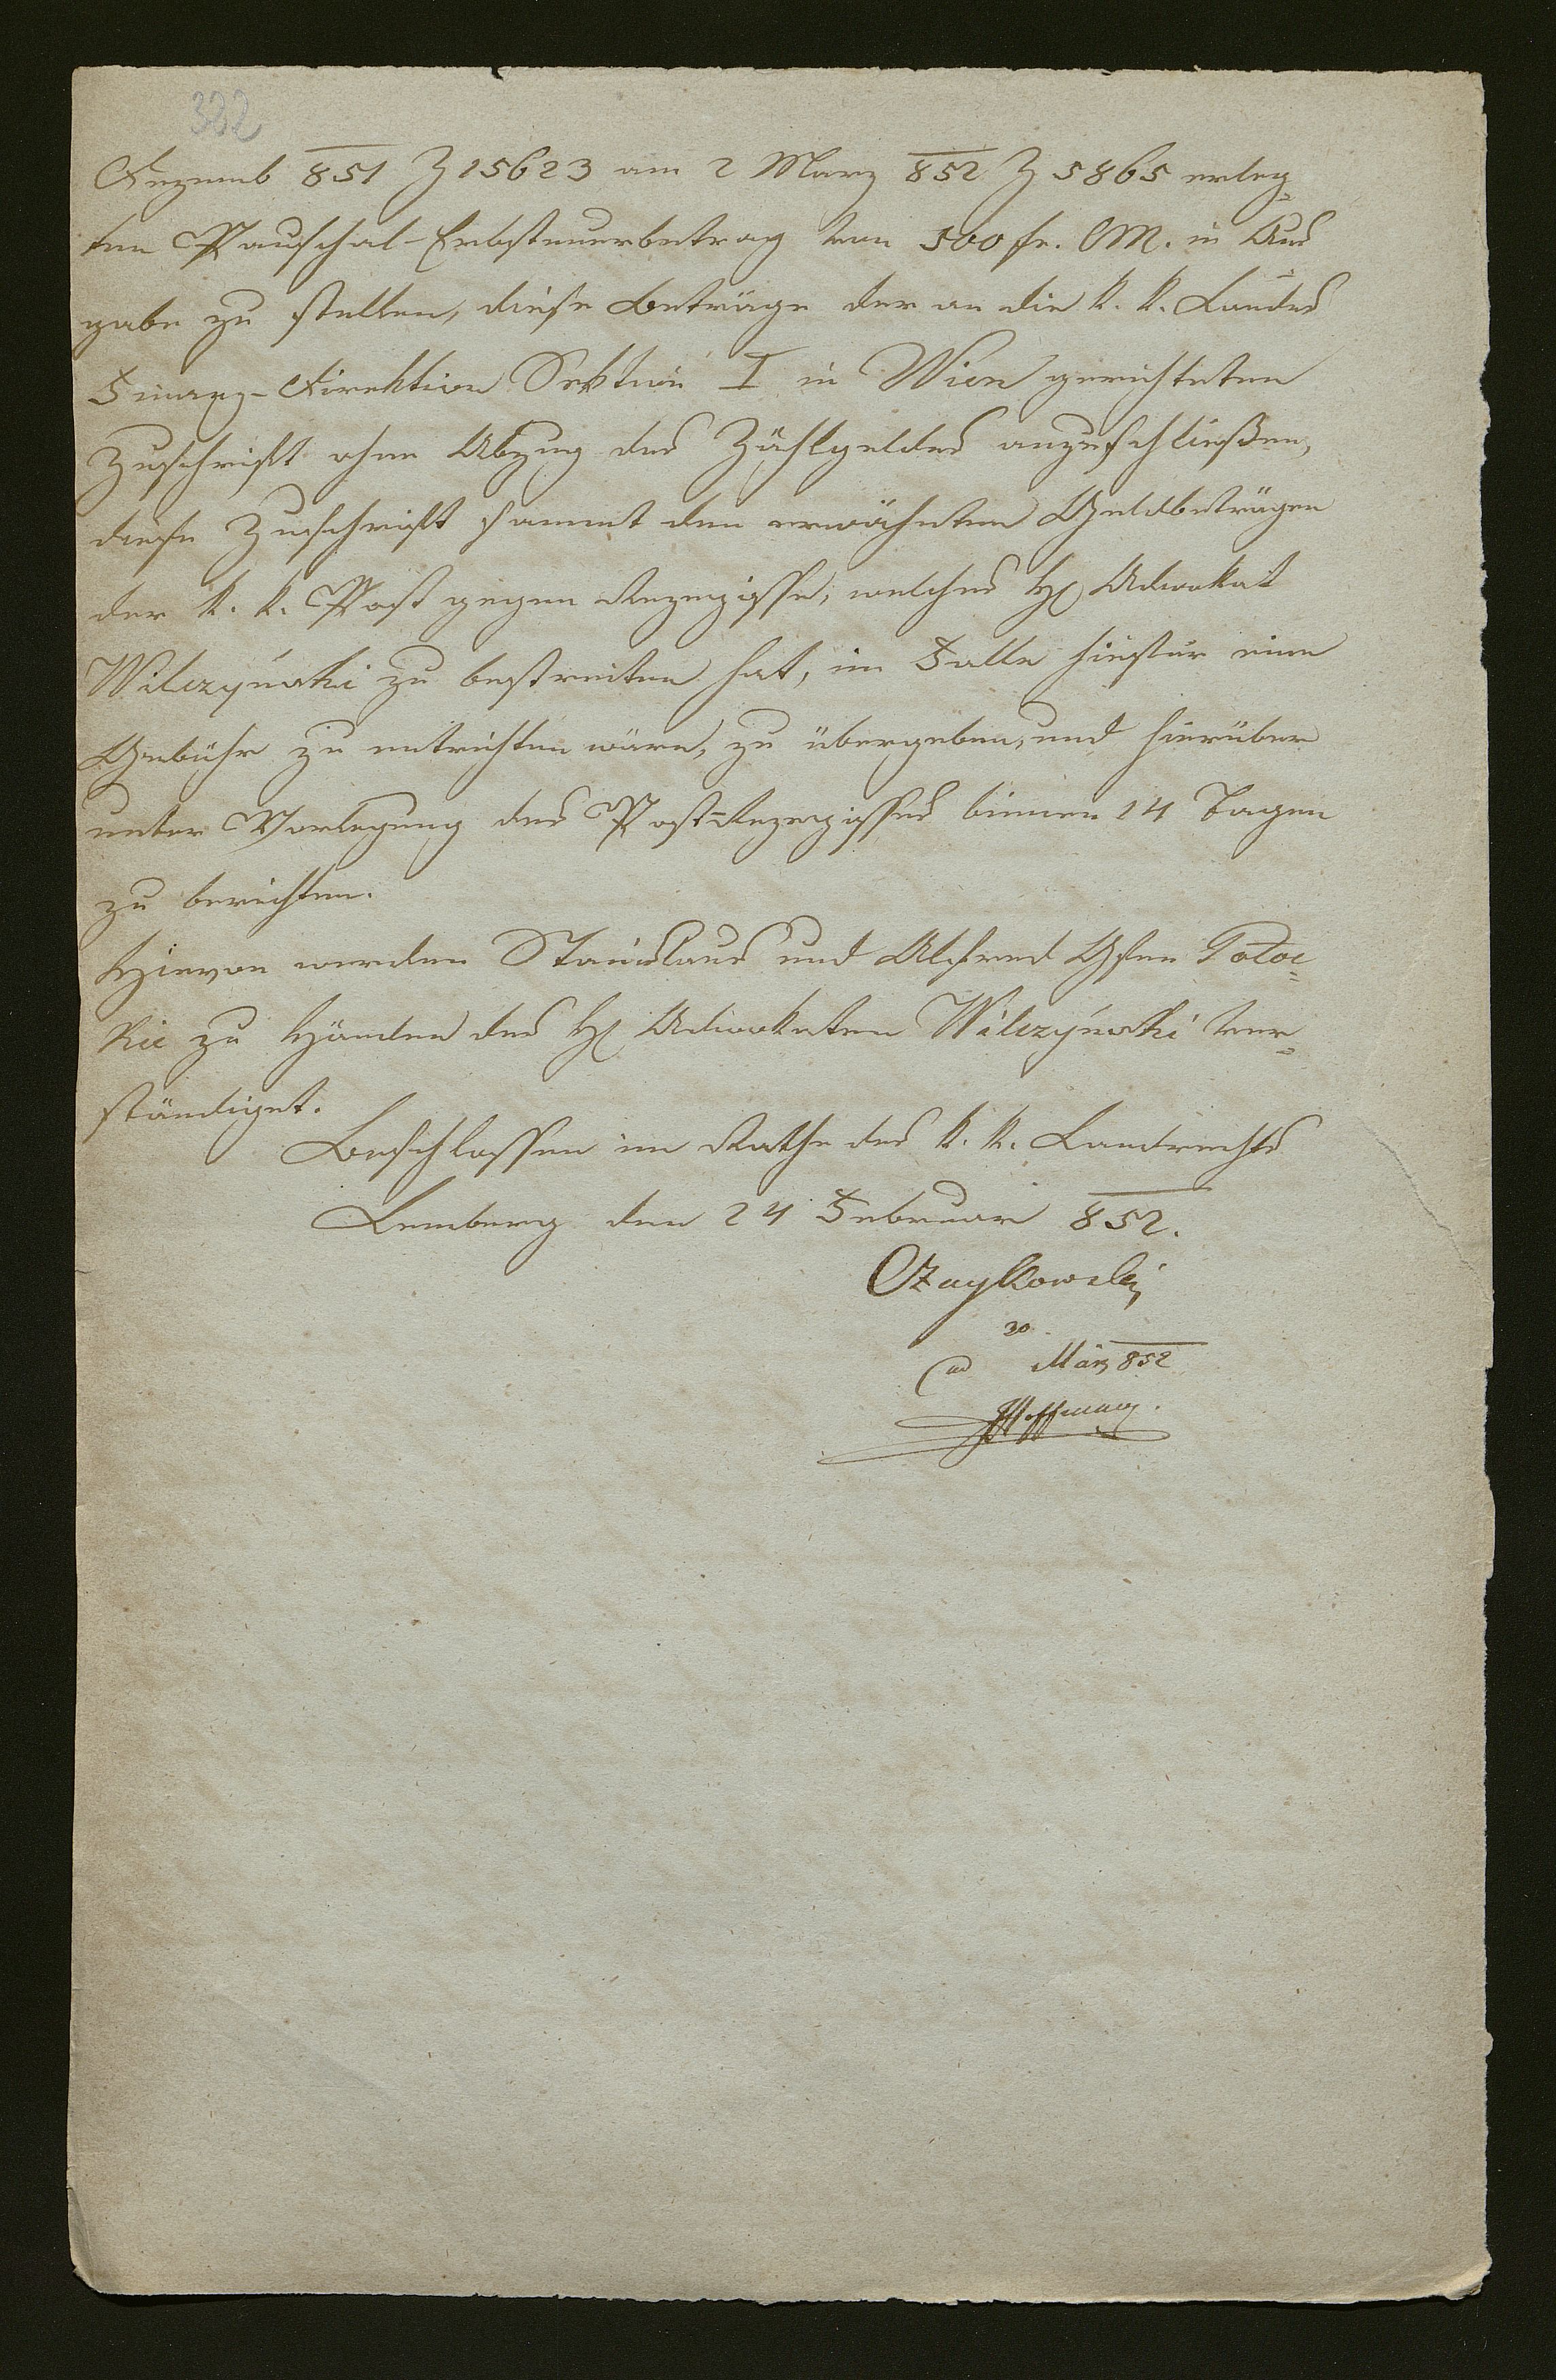 332
Dezemb 851 Z 15623 am 2 März 852 Z 5865 erleg=
ten Pauschal-Erbsteuerbetrag von 500 fr. CM. in Aus
gabe zu stellen, diese Beträge der an die k. k. Landes
Finanz-Direktion Sektion I in Wien gerichteten
Zuschrift ohne Abzug des Zählgeldes anzuschließen,
diese Zuschrift sammt den erwähnten Geldbeträgen
der k. k. Post gegen Rezepisse, welches H Advokat
Wilczyński zu bestreiten hat, im Falle hiefür eine
Gebühr zu entrichten wäre, zu übergeben, und hierüber
unter Vorlegung des Post-Rezepisses binnen 14 Tagen
zu berichten.
Hievon werden Stanislaus und Alfred Gfen Potoc=
kie zu Händen des H Advokaten Wilczyński ver=
ständiget.
Beschlossen im Rathe des k. k. Landrechts
Lemberg den 24 Februar 852.
Czaykowski
30
März 852
Hoffmann